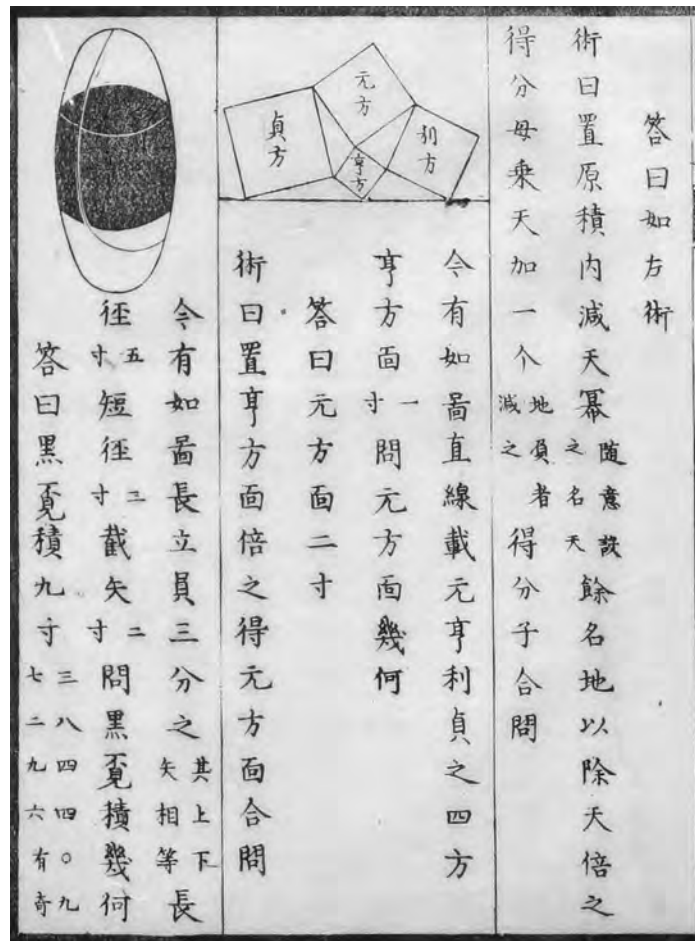 答曰如左術
術曰置原積内減天冪隨意設之名天餘名地以除天倍之
得分母乗天加一个地負者減之得分子合問
元方
貞方
利方
亨方
今有如啚直線載元亨利貞之四方
亨方面一寸問元方面幾何
答曰元方面二寸
術曰置亨方面倍之得元方面合問
今有如啚長立員三分之其上下矢相等長
径五寸短径三寸截矢二寸問黒覔積幾何
答曰黒覔積九寸三八四四〇九七二九六有奇